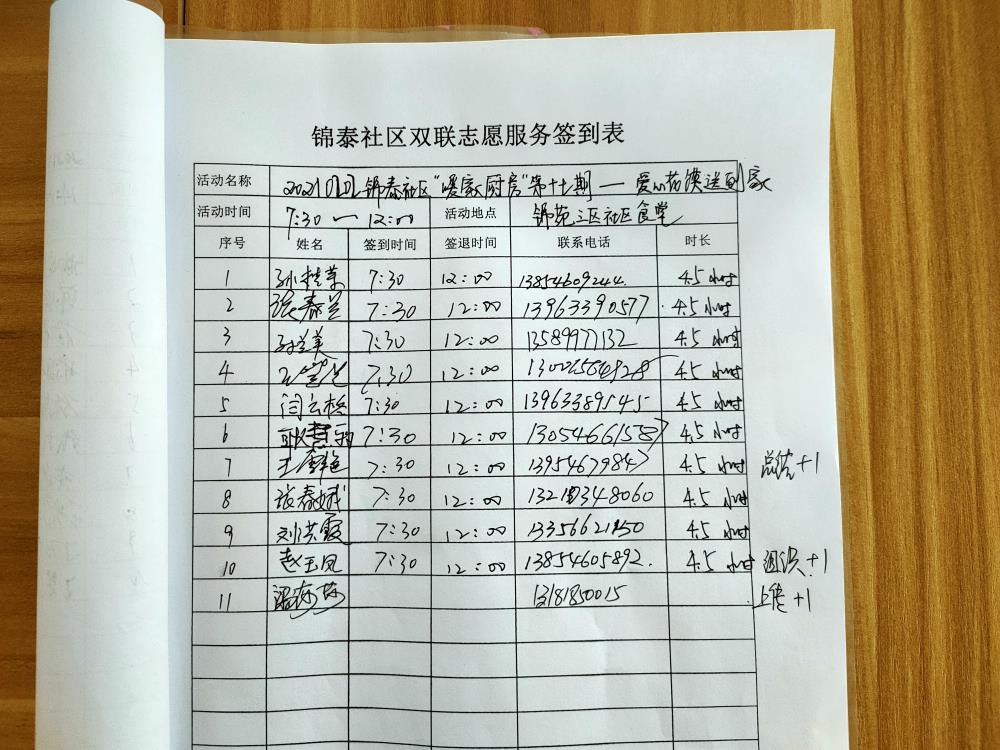 锦泰社区双联志愿服务签到表
活动名称 锦泰社区"暖家厨房"第十七期 — 爱心花馍送到家
活动时间 7:30 — 12:00 活动地点 锦苑三区社区食堂
序号 姓名 签到时间 签退时间 联系电话 时长
1 孙桂英 7:30 12:00 13854609244 4.5 小时
2 张春兰 7:30 12:00 13963390577 4.5 小时
3 7:30 12:00 13589977132 4.5 小时
4 7:30 12:00 4.5 小时
5 闫云格 7:30 12:00 13963389545 4.5 小时
6 7:30 12:00 13054661587 4.5 小时
7 王雪艳 7:30 12:00 13954679847 4.5 小时 总结+1
8 张春娥 7:30 12:00 4.5 小时
9 刘洪霞 7:30 12:00 4.5 小时
10 赵玉凤 7:30 12:00 13854605892. 4.5 小时 组织+1
11 上传+1